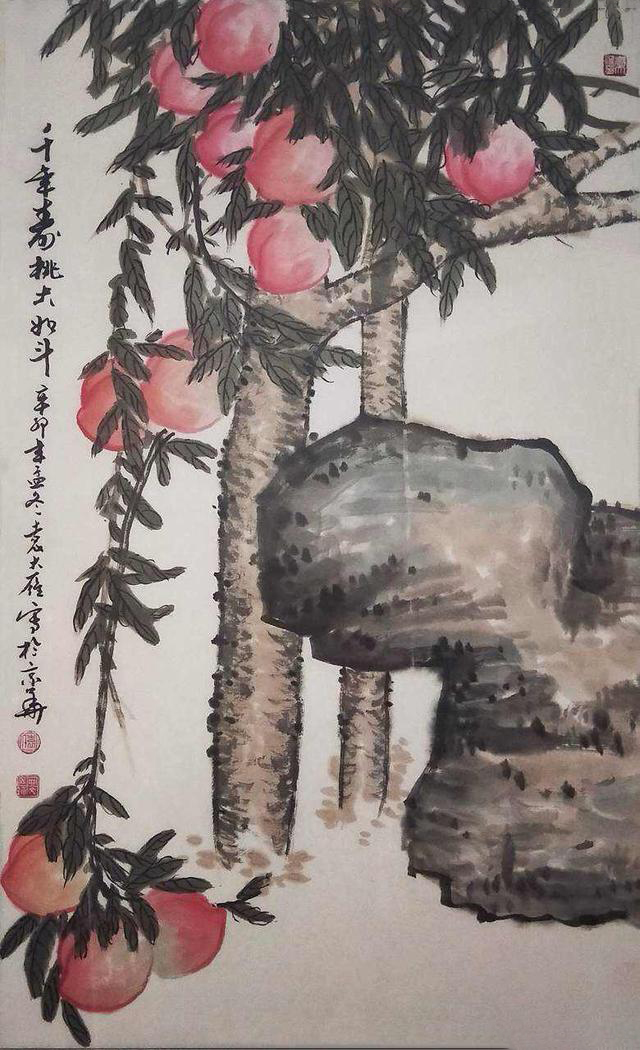 千年寿桃大如斗 辛卯年孟冬 袁大雁写于京华